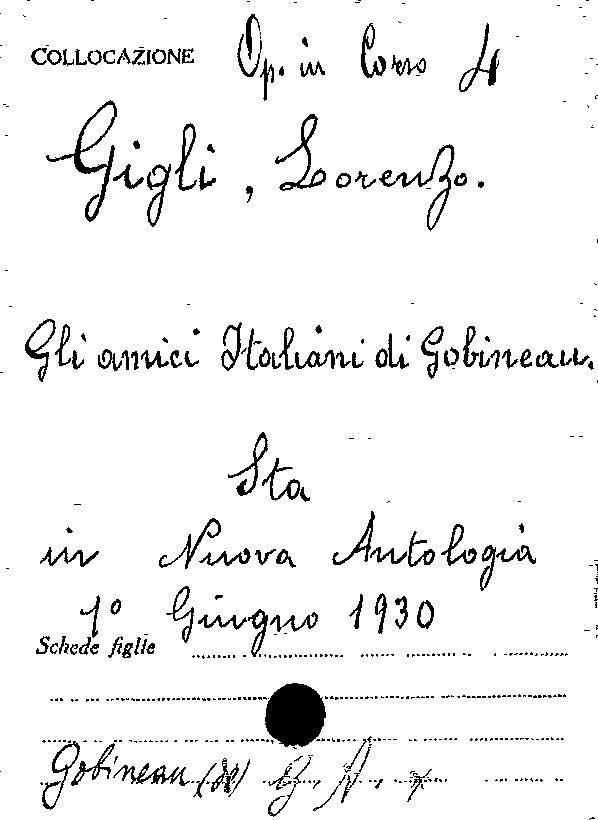 COLLOCAZIONE Op. in Corso 4
Gigli, Lorenzo.
Gli amici Italiani di Gobineau.
Sta
in Nuova Antologia
1° Giugno 1930
Schede figlie
Gobineau (de)